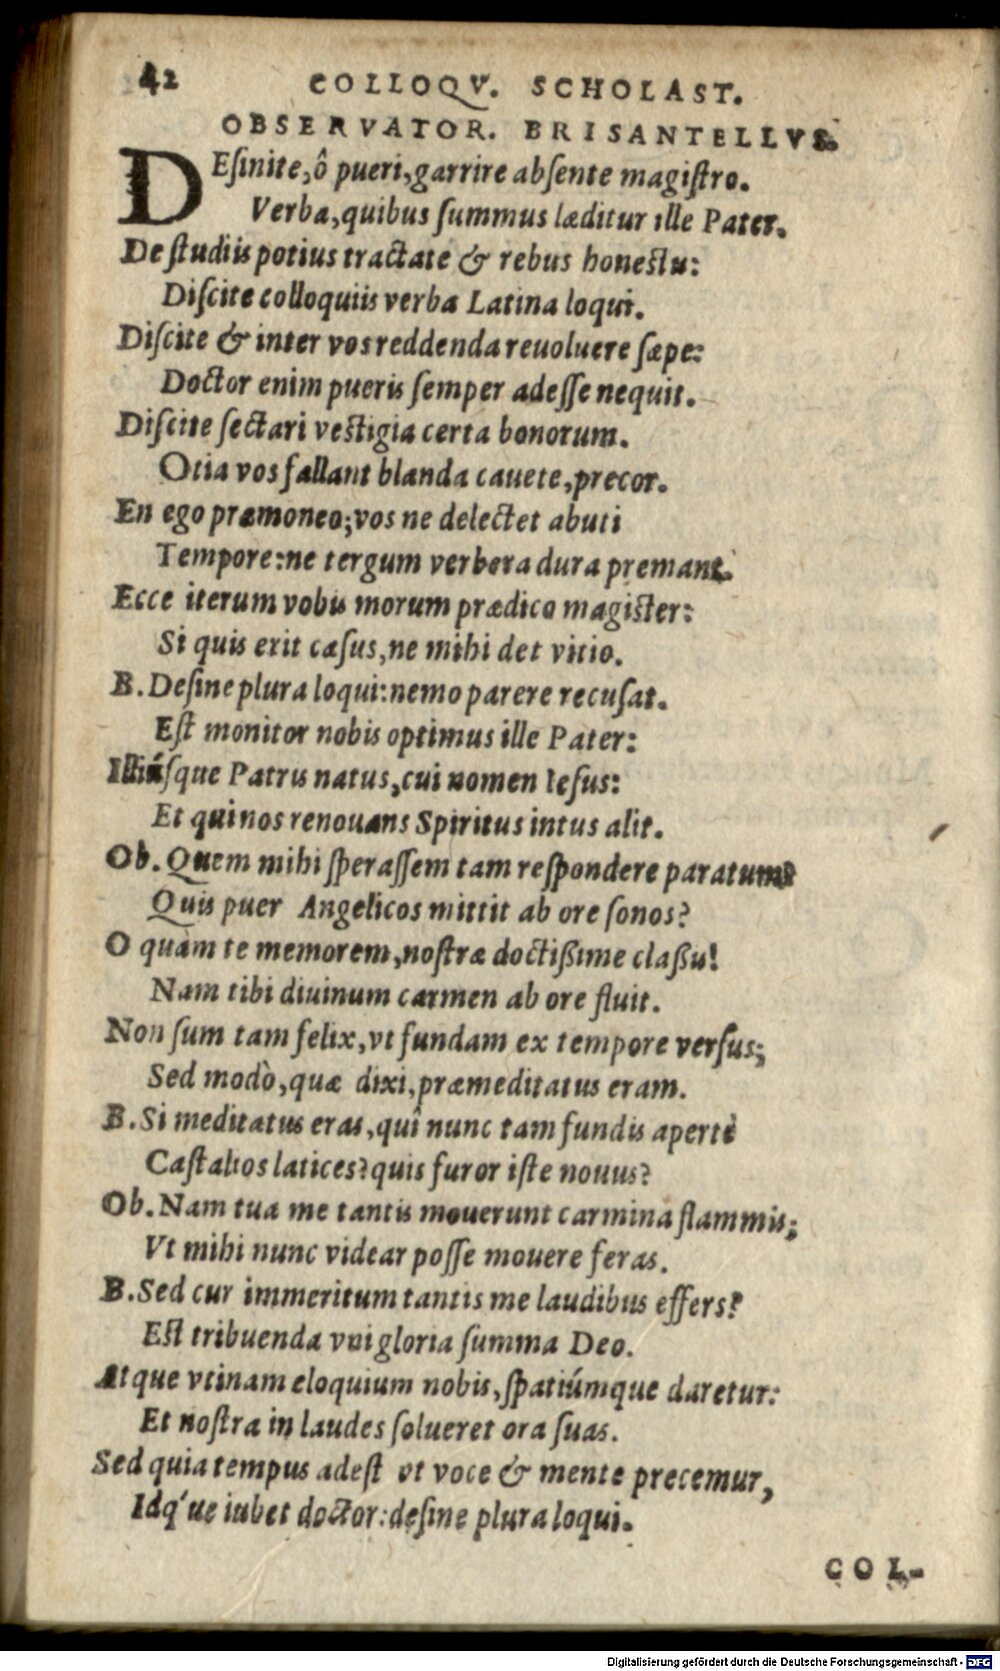 42 COLLOQV. SCHOLAST.
OBSERVATOR. BRISANTELLVS.
DEſinite, ô pueri, garrire abſente magiſtro.
Verba, quibus ſummus læditur ille Pater.
De ſtudiis potius tractate & rebus honestis:
Diſcite colloquiis verba Latina loqui.
Diſcite & inter vos reddenda reuoluere ſæpe:
Doctor enim pueris ſemper adeſſe nequit.
Diſcite ſectari vestigia certa bonorum.
Otia vos fallant blanda cauete, precor.
En ego præmoneo; vos ne delectet abuti
Tempore: ne tergum verbera dura premant.
Ecce iterum vobis morum prædico magister:
Si quis erit cæſus, ne mihi det vitio.
B. Deſine plura loqui: nemo parere recuſat.
Eſt monitor nobis optimus ille Pater:
Illiúſque Patris natus, cui nomen Ieſus:
Et qui nos renouans Spiritus intus alit.
Ob. Quem mihi ſperaſſem tam reſpondere paratum?
Quis puer Angelicos mittit ab ore ſonos?
O quàm te memorem, noſtræ doctißime claßis!
Nam tibi diuinum carmen ab ore fluit.
Non ſum tam felix, vt fundam ex tempore verſus;
Sed modò, quæ dixi, præmeditatus eram.
B. Si meditatus eras, quî nunc tam fundis apertè
Caſtalios latices? quis furor iſte nouus?
Ob. Nam tua me tantis mouerunt carmina flammis;
Vt mihi nunc videar poſſe mouere feras.
B. Sed cur immeritum tantis me laudibus effers?
Eſt tribuenda vni gloria ſumma Deo.
Atque vtinam eloquium nobis, ſpatiúmque daretur:
Et noſtra in laudes ſolueret ora ſuas.
Sed quia tempus adeſt vt voce & mente precemur,
Idq́ue iubet doctor: deſine plura loqui.
COL-
Digitalisierung gefördert durch die Deutsche Forschungsgemeinschaft - DFG